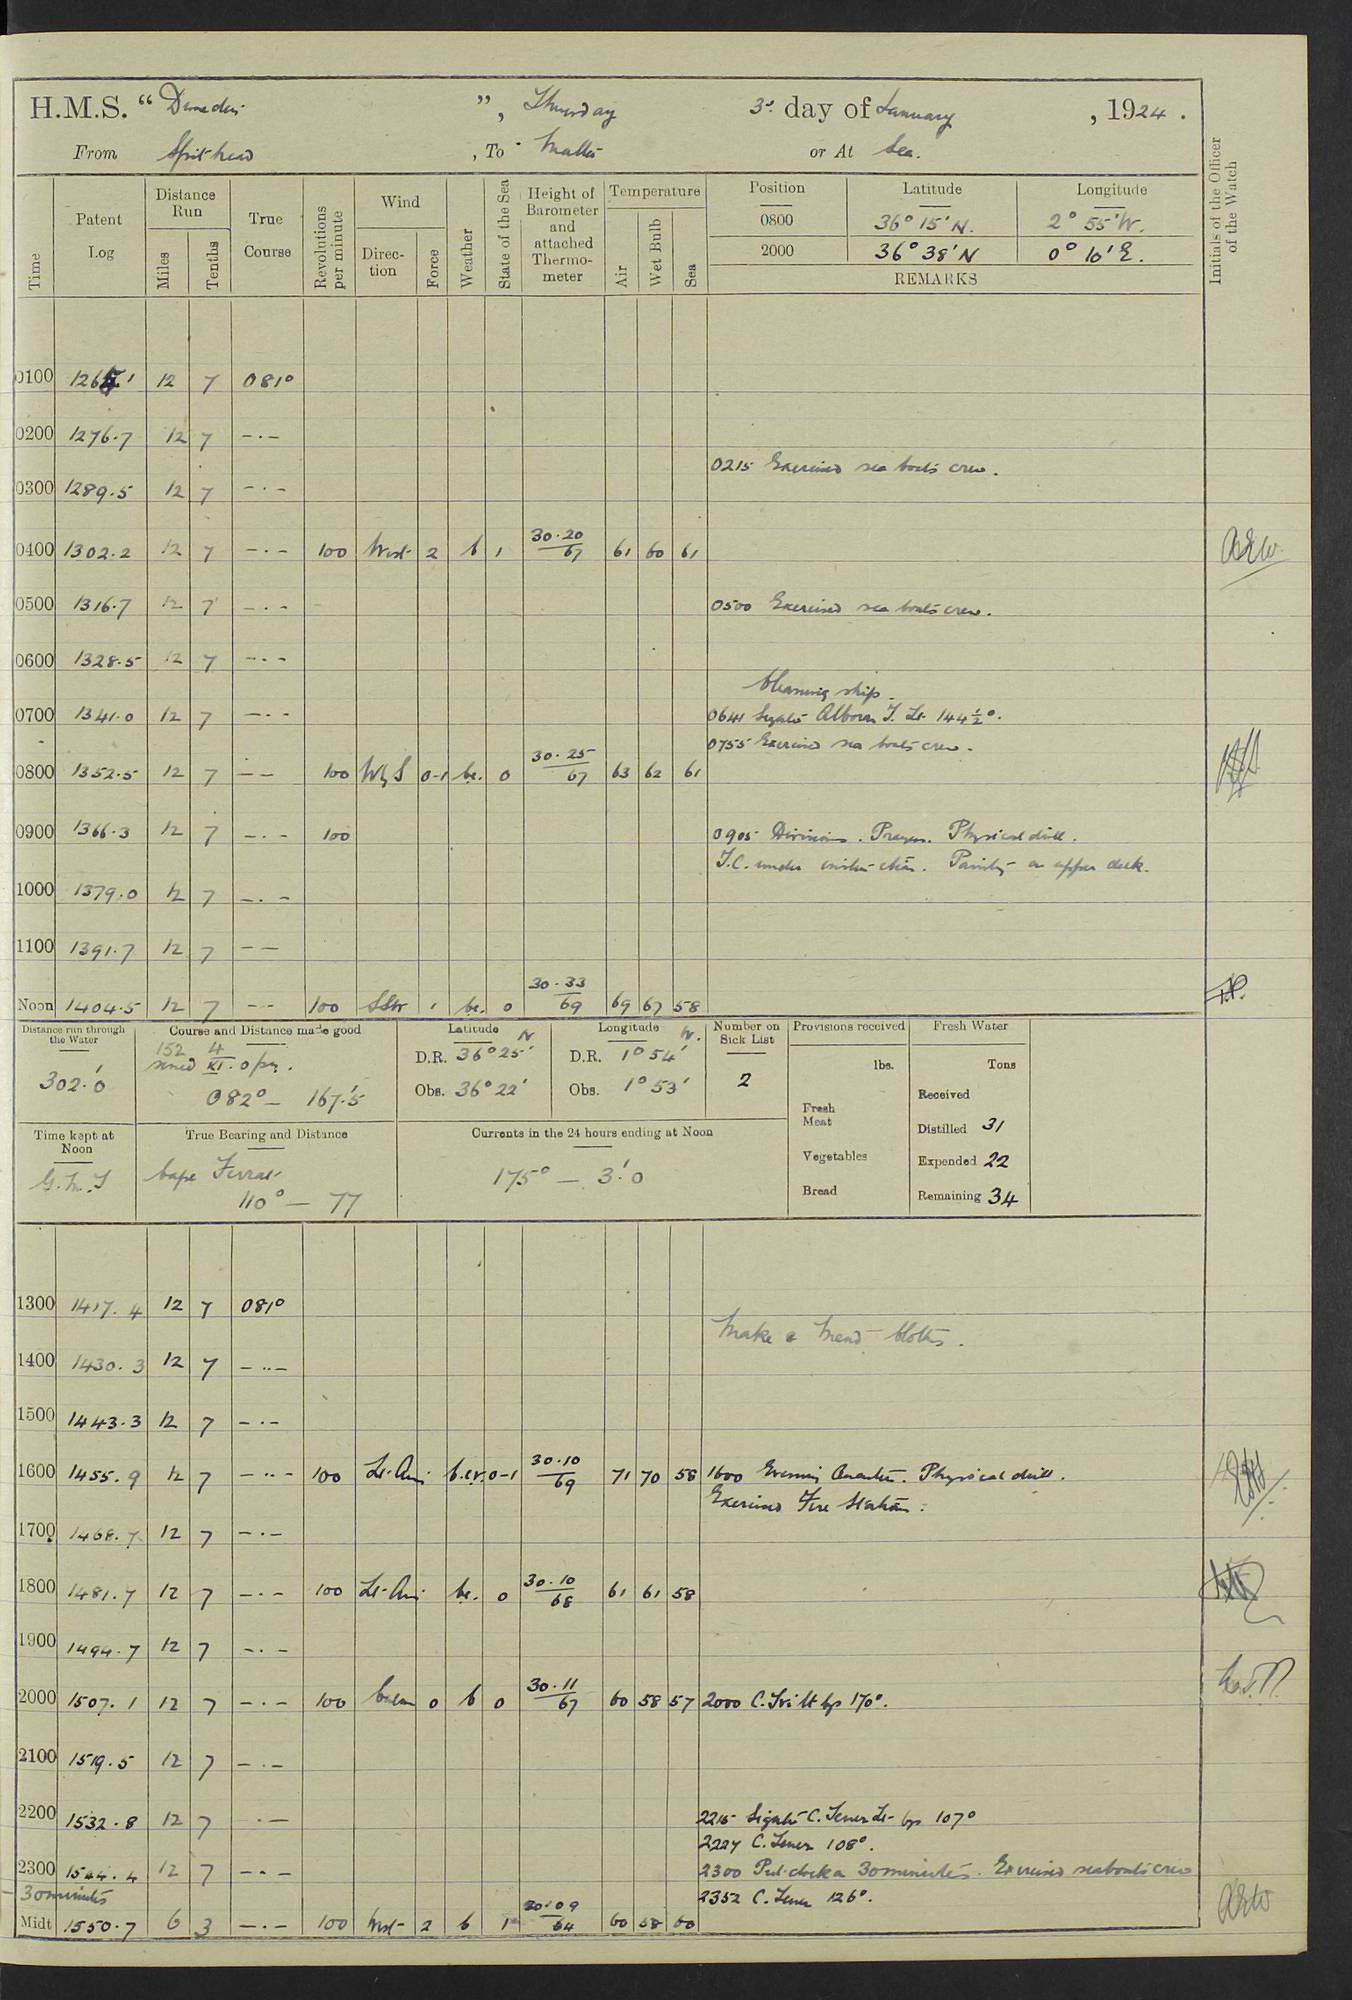 H.M.S. “ Dunedin ”, Thursday 3rd day of January, 1924.
From Spithead, To Malta or At Sea.
Time Patent Log Distance Run Miles Tenths True Course Revolutions per minute Wind Direction Force Weather State of the Sea Height of Barometer and attached Thermometer Temperature Air Wet Bulb Sea Position Latitude Longitude Initials of the Officer of the Watch
0800 36° 15' N. 2° 55' W.
2000 36° 38' N 0° 10' E.
REMARKS
0100 1264.1 12 7 081°
0200 1276.7 12 7 -.-
0215 Exercised sea boats crew.
0300 1289.5 12 7 -.-
0400 1302.2 12 7 -.- 100 West 2 b 1 30.20 67 61 60 61
0500 1316.7 12 7 -.- 0500 Exercised sea boats crew.
0600 1328.5 12 7 -.-
Cleaning ship.
0700 1341.0 12 7 -.- 0641 Sighted Alboran I. Lt. 144½°.
0755 Exercised sea boats crew.
0800 1352.5 12 7 -- 100 WbyS 0-1 bc. 0 30.25 67 63 62 61
0900 1366.3 12 7 -.- 100 0905 Divisions. Prayers. Physical drill.
T.C. under instruction. Painting on upper deck.
1000 1379.0 12 7 -.-
1100 1391.7 12 7 --
Noon 1404.5 12 7 -- 100 SSW 1 bc. 0 30.33 69 69 67 58
Distance run through the Water 302.'0
Course and Distance made good
082° - 167.'5
Latitude N D.R. 36° 25' Obs. 36° 22'
Longitude W. D.R. 1° 54' Obs. 1° 53'
Number on Sick List 2
Provisions received lbs. Fresh Meat Vegetables Bread
Fresh Water Tons Received Distilled 31 Expended 22 Remaining 34
Time kept at Noon G.M.T
True Bearing and Distance Cape Ferrat 110° - 77
Currents in the 24 hours ending at Noon 175° - 3.'0
1300 1417.4 12 7 081°
Make & Mend Clothes.
1400 1430.3 12 7 -..-
1500 1443.3 12 7 -.-
1600 1455.9 12 7 -..- 100 Lt. Airs b.cv. 0-1 30.10 69 71 70 58 1600 Evening Quarters. Physical drill.
Exercised Fire Stations.
1700 1468.7 12 7 -.-
1800 1481.7 12 7 -.- 100 Lt. Airs bc. 0 30.10 68 61 61 58
1900 1494.7 12 7 -.-
2000 1507.1 12 7 -.- 100 Calm 0 b 0 30.11 67 60 58 57 2000 C. Ivi lt bg 170°.
2100 1519.5 12 7 -.-
2200 1532.8 12 7 .- 2215 Sighted C. Tenez Lt. bg 107°
2227 C. Tenez 108°.
2300 1544.4 12 7 -.- 2300 Put clock on 30 minutes. Exercised seaboats crew
- 30 minutes
2352 C. Tenez 126°.
Midt 1550.7 6 3 -.- 100 West 2 b 1 30.09 64 60 58 60